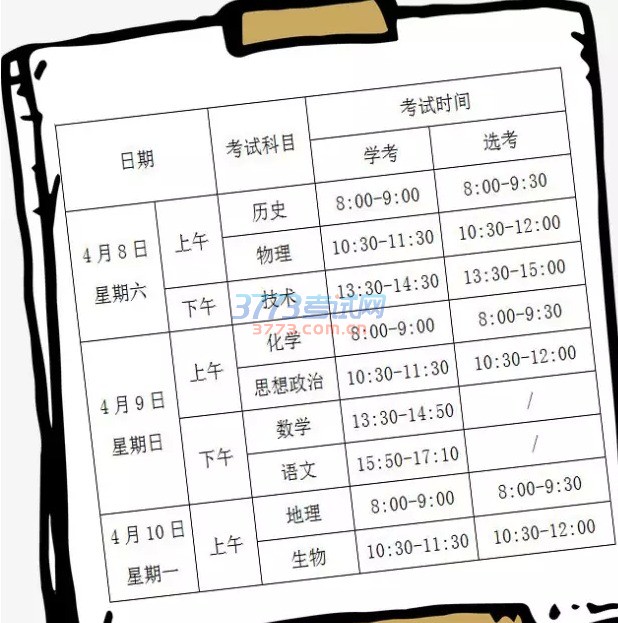 日期 考试科目 考试时间
学考 选考
4月8日 星期六 上午 历史 8:00-9:00 8:00-9:30
物理 10:30-11:30 10:30-12:00
下午 技术 13:30-14:30 13:30-15:00
3773考试网
3773.com.cn
4月9日 星期日 上午 化学 8:00-9:00 8:00-9:30
思想政治 10:30-11:30 10:30-12:00
下午 数学 13:30-14:50 /
语文 15:50-17:10 /
4月10日 星期一 上午 地理 8:00-9:00 8:00-9:30
生物 10:30-11:30 10:30-12:00